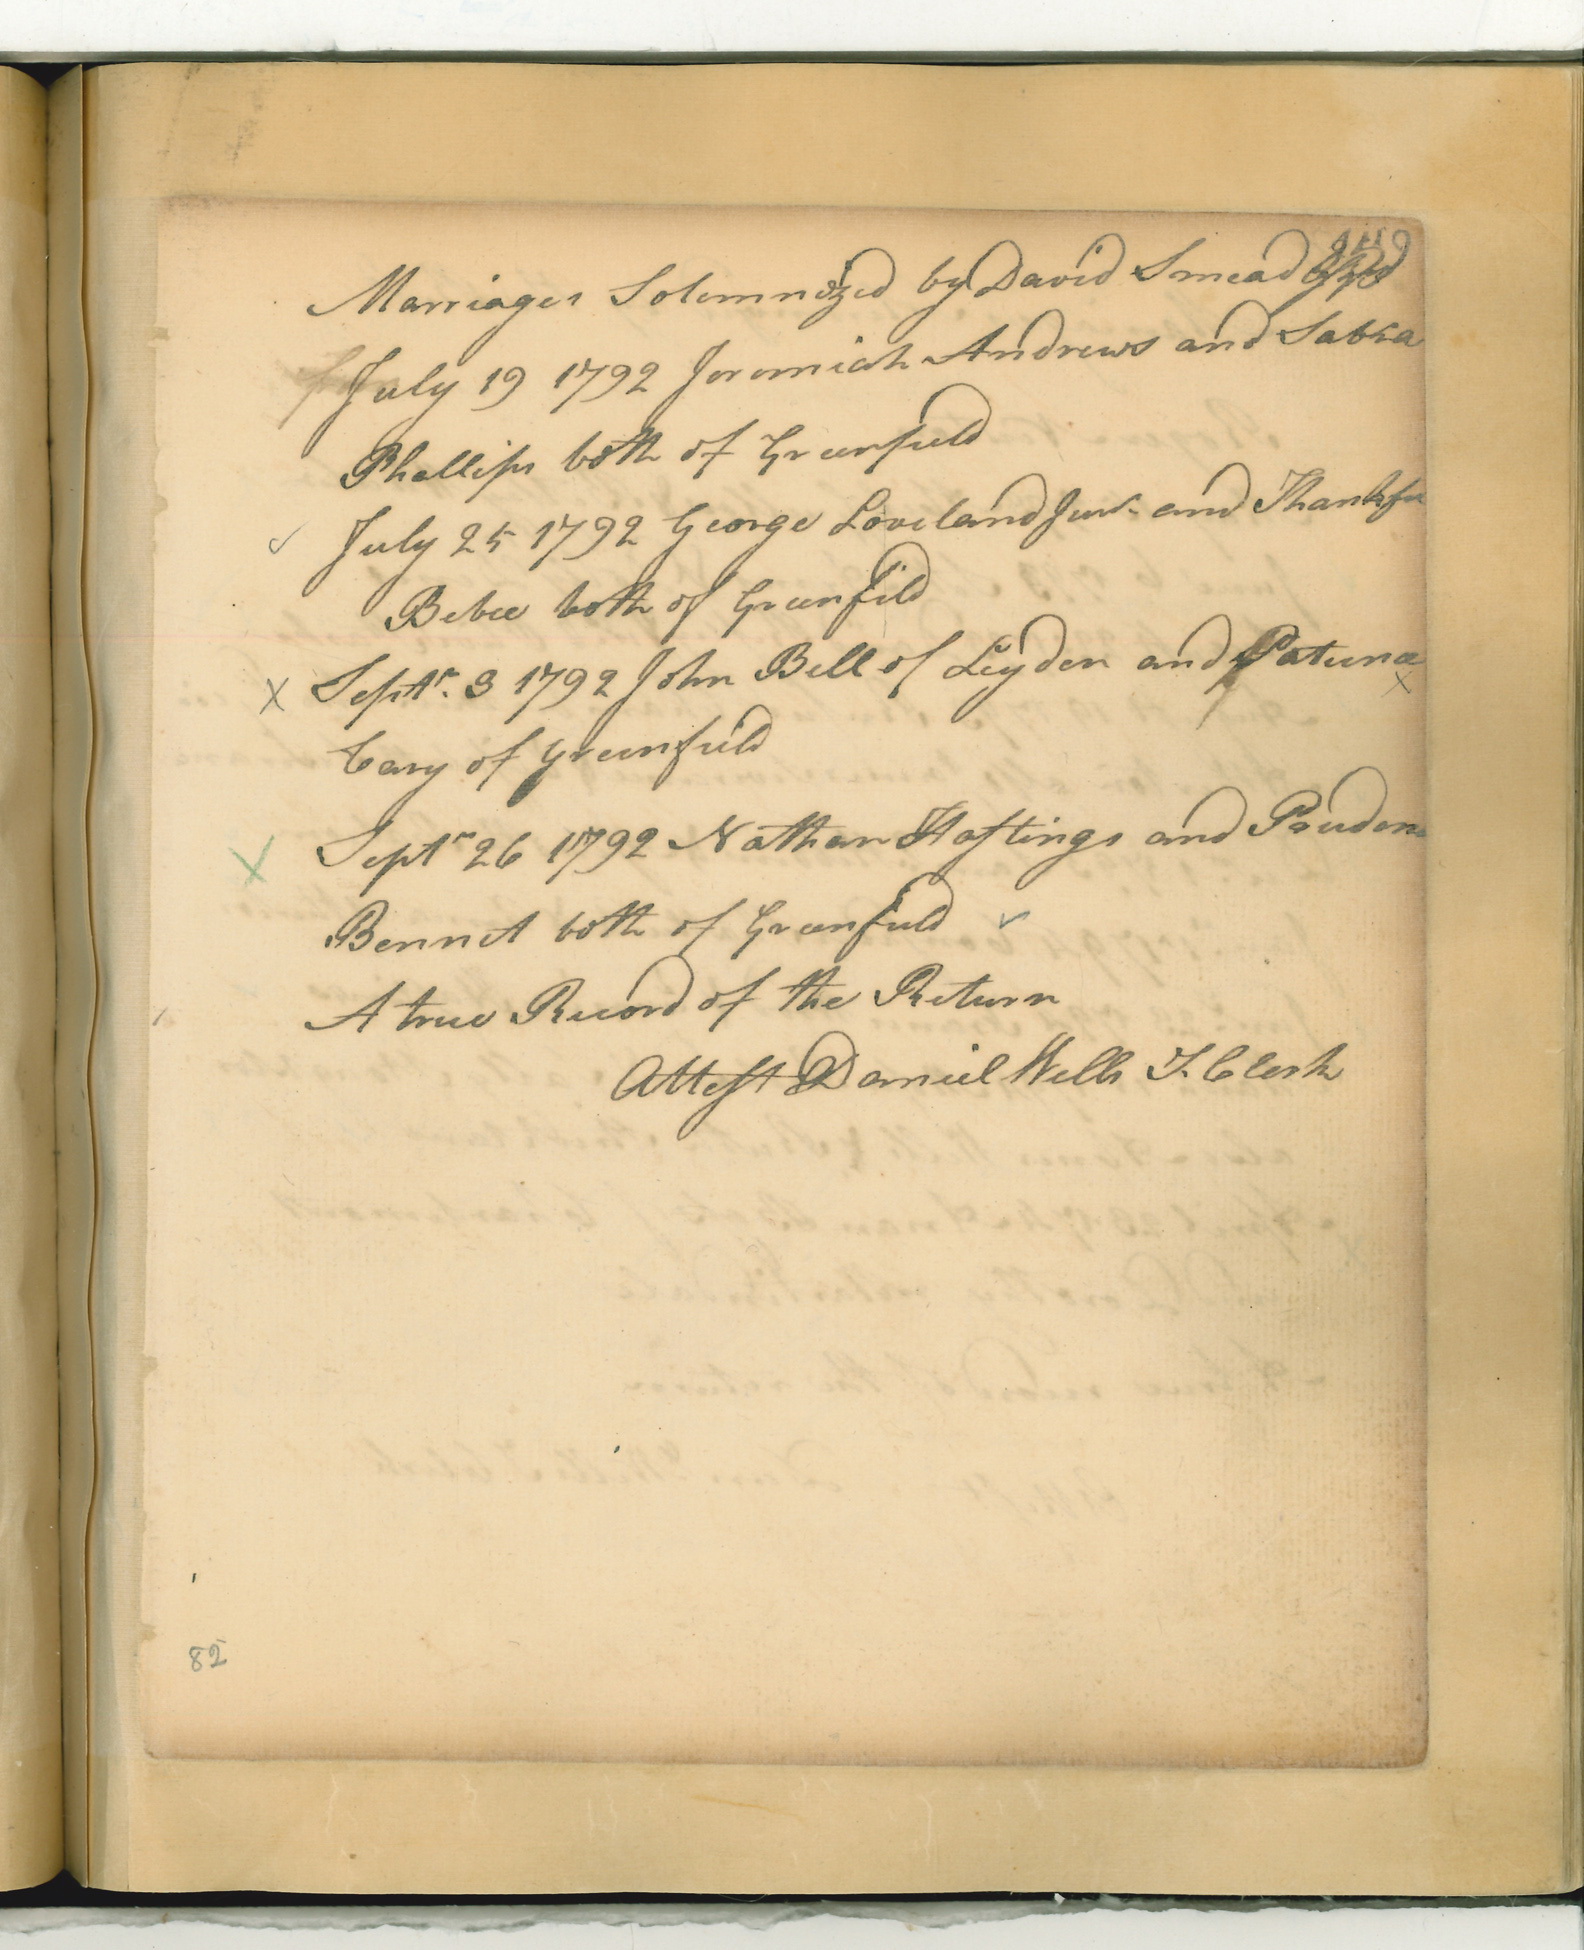 119
Marriages Solemnized by David Smead Esqr
July 19 1792 Jeremiah Andrews and Sabra
Phallips both of Greenfield
July 25 1792 George Loveland Junr and Thankfu
Bebee both of Greenfild
Septr. 3 1792 John Bell of Leyden and
Cary of Greenfield
Septr 26 1792 Nathan Hastings and Prudenc
Bennet both of Greenfield
A true Record of the Return
Attest Daniel Wells T. Clerk
82